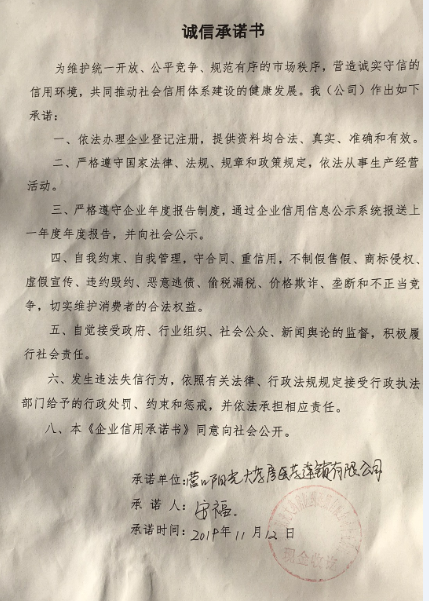 诚信承诺书
为维护统一开放、公平竞争、规范有序的市场秩序，营造诚实守信的
信用环境，共同推动社会信用体系建设的健康发展。我（公司）作出如下
承诺：
一、依法办理企业登记注册，提供资料均合法、真实、准确和有效。
二、严格遵守国家法律、法规、规章和政策规定，依法从事生产经营
活动。
三、严格遵守企业年度报告制度，通过企业信用信息公示系统报送上
一年度年度报告，并向社会公示。
四、自我约束、自我管理，守合同、重信用，不制假售假、商标侵权、
虚假宣传、违约毁约、恶意逃债、偷税漏税、价格欺诈、垄断和不正当竞
争，切实维护消费者的合法权益。
五、自觉接受政府、行业组织、社会公众、新闻舆论的监督，积极履
行社会责任。
六、发生违法失信行为，依照有关法律、行政法规规定接受行政执法
部门给予的行政处罚、约束和惩戒，并依法承担相应责任。
八、本《企业信用承诺书》同意向社会公开。
承诺单位：营口阳光大药房医药连锁有限公司
承 诺 人：福
承诺时间：2019年11月12日
现金收讫